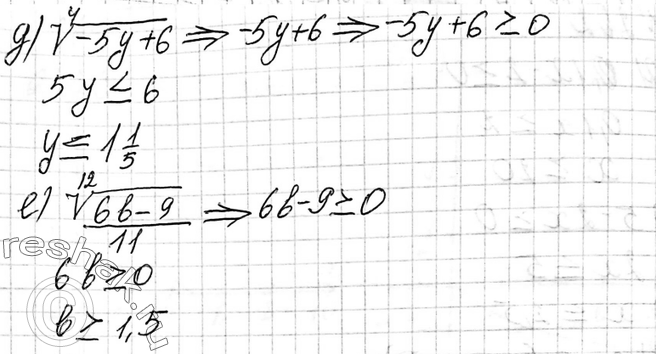 д) ⁴√(-5y+6) ⇒ -5y+6 ⇒ -5y+6 ≥ 0
5y ≤ 6
y ≤ 1 1/5
е) ¹²√(6b-9)/11 ⇒ 6b-9 ≥ 0
6b ≥ 0
b ≥ 1,5
reshak.ru